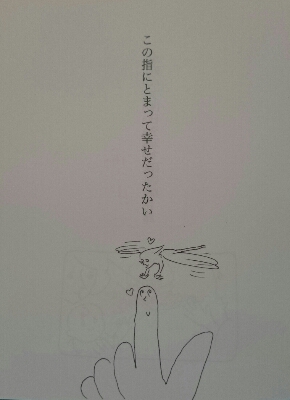 この指にとまって幸せだったかい